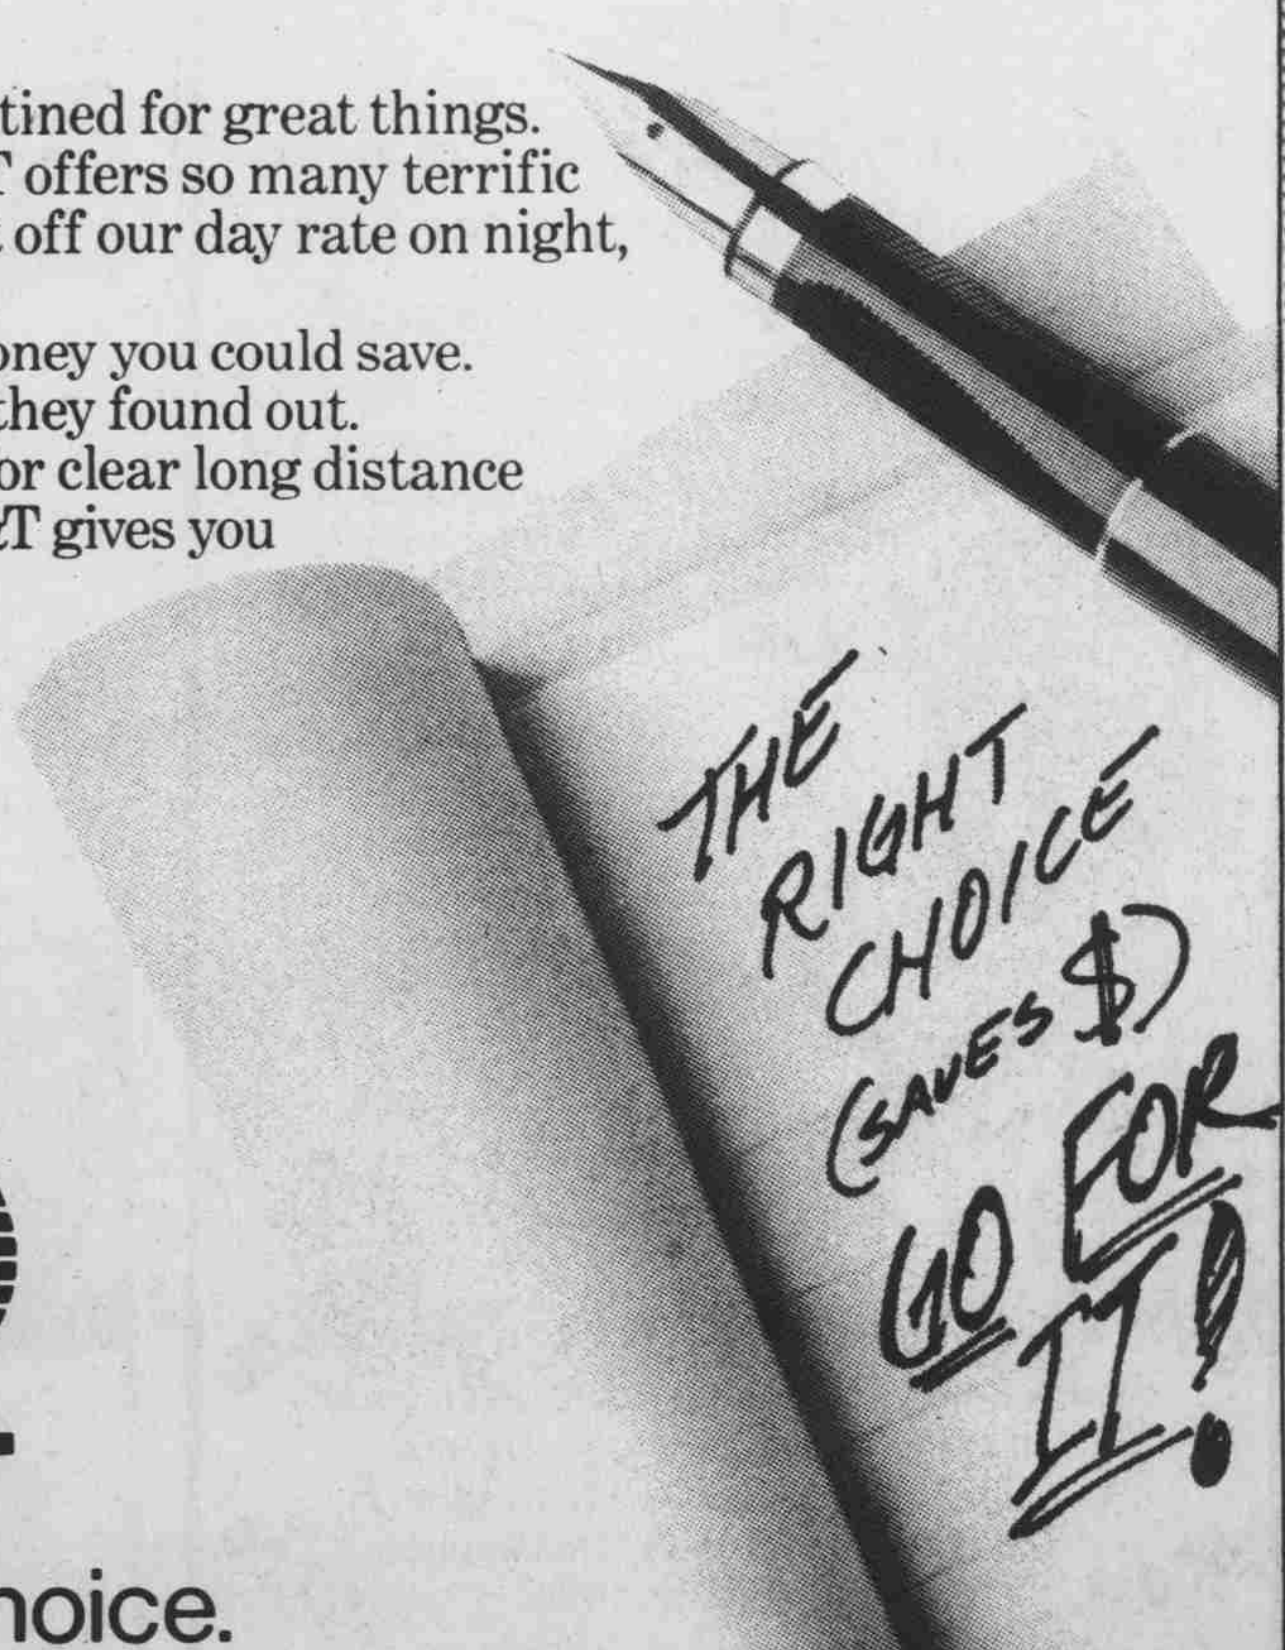 tined for great things.
T offers so many terrific
off our day rate on night,
oney you could save.
they found out.
or clear long distance
&T gives you
THE
RIGHT
CHOICE
(SAVES $)
GO FOR
IT!
hoice.